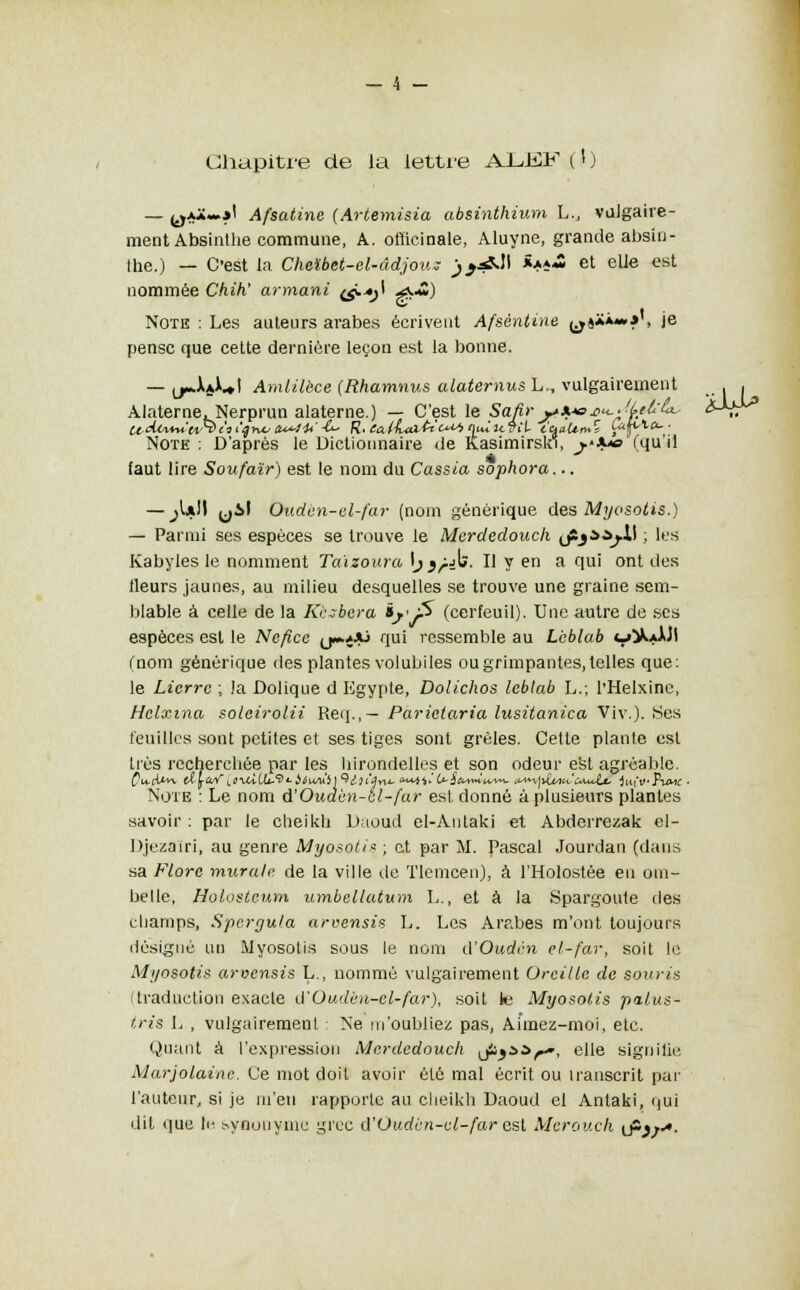 — 4 —
Chapitre de la lettre ALEF (1)
— افسنتين Afsatine (Artemisia absinthium L., vulgaire-
ment Absinthe commune, A. officinale, Aluyne, grande absin-
the.) — C'est la Cheïbet-el-âdjouz شيبة العجوز et elle est
nommée Chih' armani شيح ارمني)
NOTE : Les auteurs arabes écrivent Afsèntine افسنتين, je
pense que cette dernière leçon est la bonne.
— امليلس Amlilèce (Rhamnus alaternus L., vulgairement
Alaterne, Nerprun alaterne.) — C'est le Safir
NOTE : D'après le Dictionnaire de Kasimirski, صفير (qu'il
faut lire Soufaïr) est le nom du Cassia sophora...
— اذن الفار Oudèn-el-far (nom générique des Myosotis.)
— Parmi ses espèces se trouve le Merdedouch المرددوش ; les
Kabyles le nomment Taïzoura تايزورا. Il y en a qui ont des
fleurs jaunes, au milieu desquelles se trouve une graine sem-
blable à celle de la Kèzbera كزبرة (cerfeuil). Une autre de ses
espèces est le Nefice نفيس qui ressemble au Lèblab اللبلاب
(nom générique des plantes volubiles ou grimpantes, telles que:
le Lierre ; la Dolique d Egypte, Dolichos leblab L.; l'Helxine,
Helxina soleirolii Req., — Parietaria lusitanica Viv.). Ses
feuilles sont petites et ses tiges sont grêles. Cette plante est
très recherchée par les hirondelles et son odeur est agréable.
NOTE : Le nom d'Oudèn-èl-far est donné à plusieurs plantes
savoir : par le cheikh Daoud el-Antaki et Abderrezak el-
Djezaïri, au genre Myosotis ; et par M. Pascal Jourdan (dans
sa Flore murale de la ville de Tlemcen), à l'Holostée en om-
belle, Holosteum umbellatum L., et à la Spargoute des
champs, Spergula arvensis L. Les Arabes m'ont toujours
désigné un Myosotis sous le nom d'Oudèn el-far, soit le
Myosotis arvensis L., nommé vulgairement Oreille de souris
(traduction exacte d'Oudèn-el-far), soit le Myosotis palus-
tris L , vulgairement : Ne m'oubliez pas, Aimez-moi, etc.
Quant à l'expression Merdedouch مرددوش, elle signifie
Marjolaine. Ce mot doit avoir été mal écrit ou transcrit par
l'auteur, si je m'en rapporte au cheikh Daoud el Antaki, qui
dit que le synonyme grec d'Oudèn-el-far est Merouch مروش.